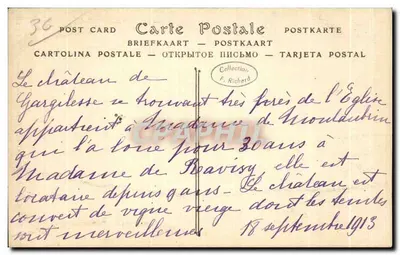 36
POST CARD Carte Postale POSTKARTE
BRIEFKAART — POSTKAART
CARTOLINA POSTALE — ОТКРЫТОЕ ПИСЬМО — TARJETA POSTAL
Collection
Richard
Le château de
Gargilesse se trouvant très près de l'Eglise
appartient à Madame de
qui l'a loué pour 30 ans à
Madame de elle est
locataire depuis 9 ans — Le château est
couvert de vigne vierge dont les teintes
sont merveilleuses 18 septembre 1913